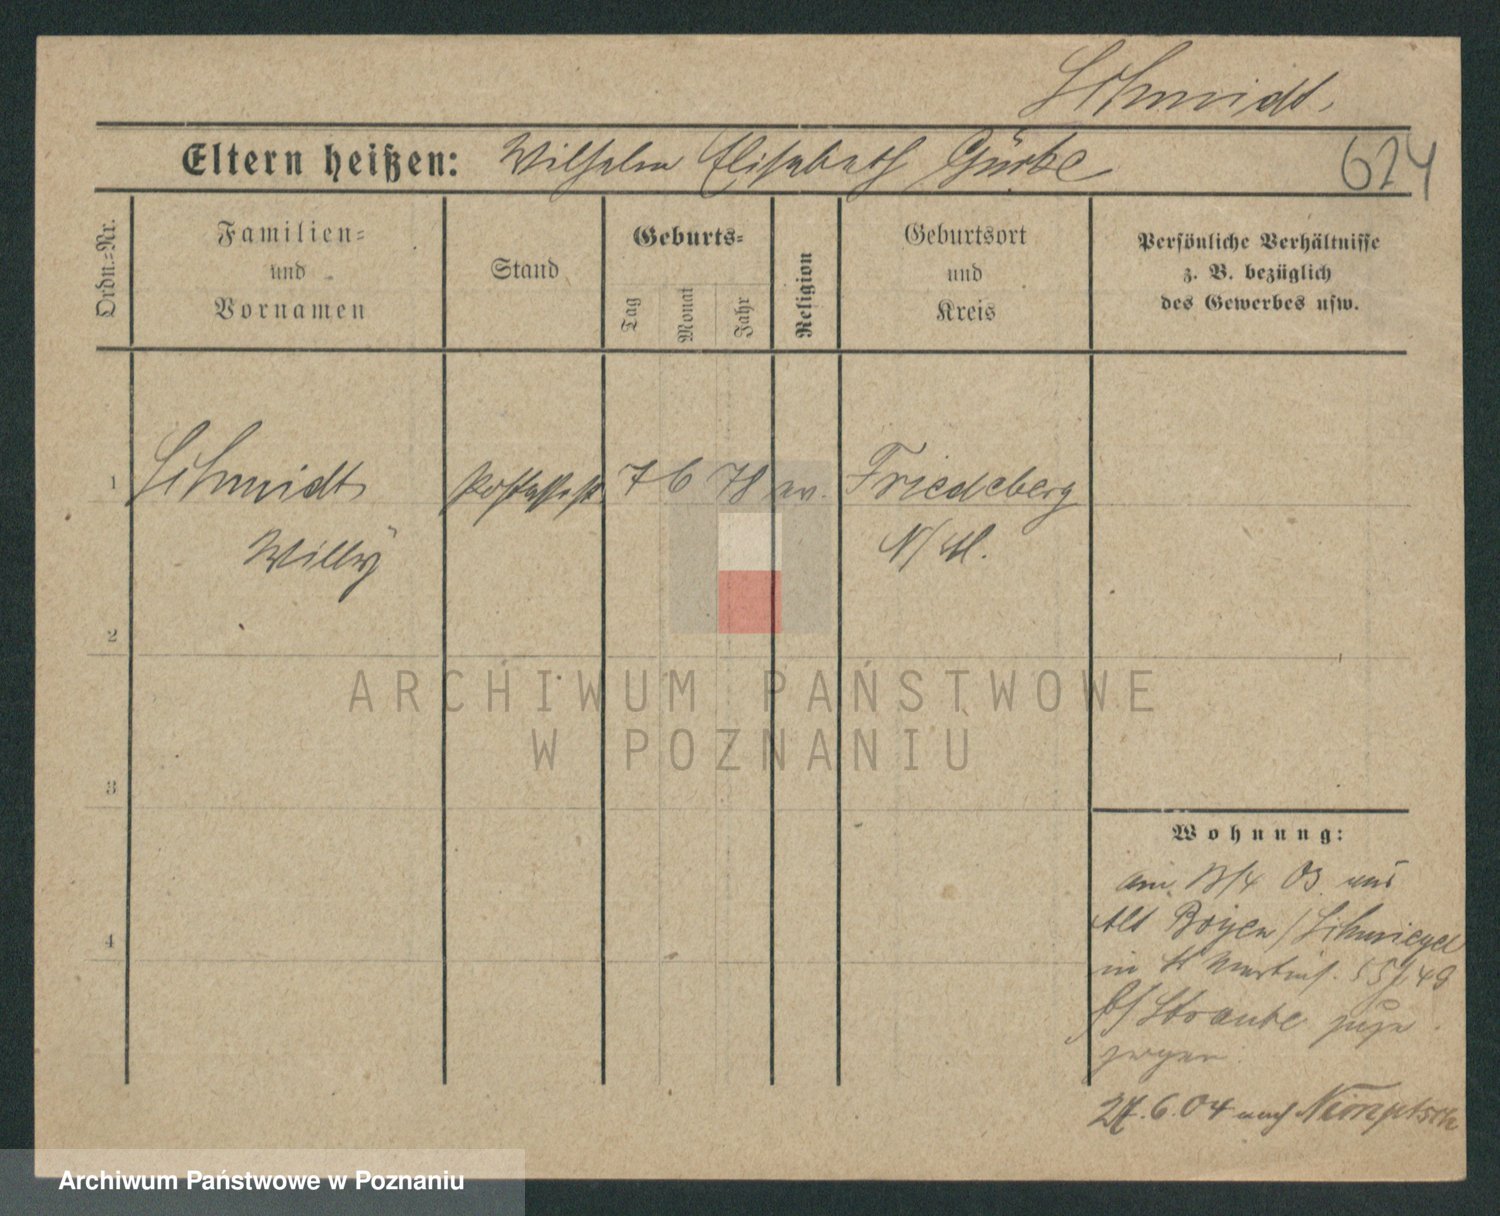 Schmidt.
Eltern heißen: Wilhelm Elisabeth Gürke
624
Ordn.=Nr.
Familien=
und
Vornamen
Stand
Geburts=
Tag
Monat
Jahr
Religion
Geburtsort
und
Kreis
Persönliche Verhältnisse
z. B. bezüglich
des Gewerbes usw.
1 Schmidt 7 6 78 ev. Friedeberg
Willy N/M.
2
3
4
ARCHIWUM PAŃSTWOWE
W POZNANIU
Wohnung:
am 03 aus
Alt Boyen / Schmiegel
in St Martinstr.
b/ Straube zuge
zogen.
.6.04 nach Nimptsch
Archiwum Państwowe w Poznaniu